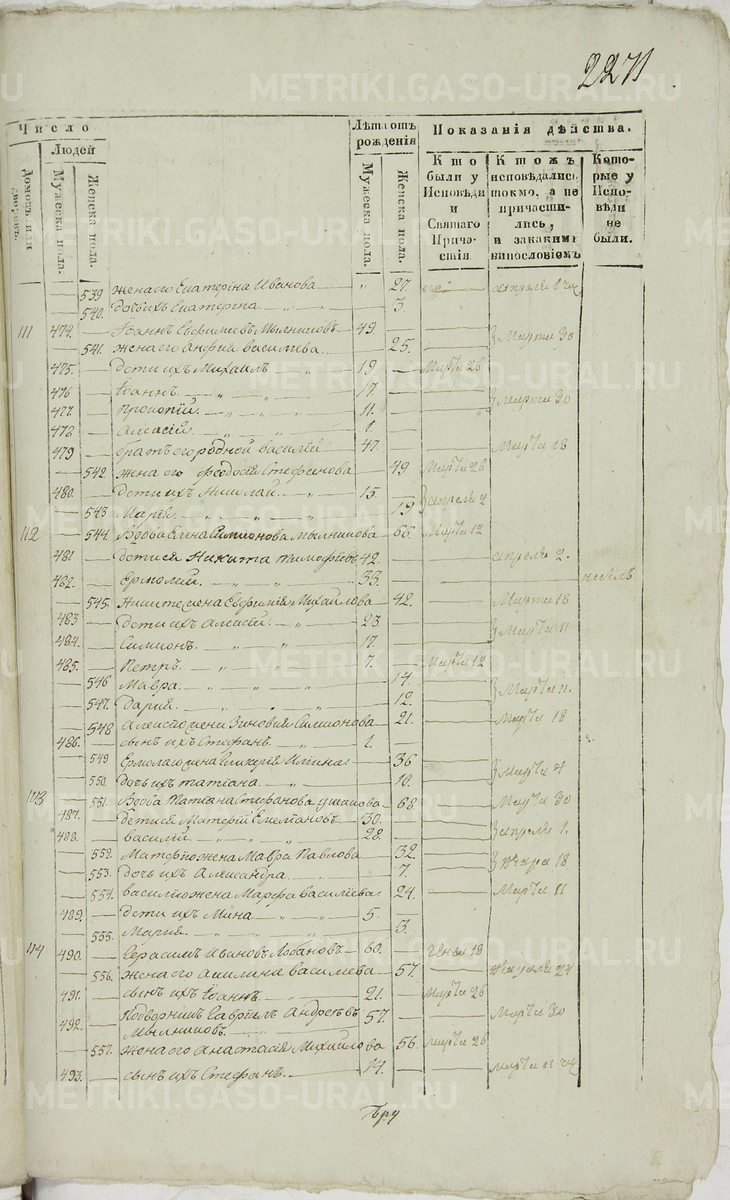 2271
METRIKI.GASO-URAL.RU
Число
Лѣта отъ рождения
Показанія дѣйства.
Людей
Домовъ или дворовъ.
Мужеска пола.
Женска пола.
Мужеска пола.
Женска пола.
Кто были у Исповѣди и Святаго Причастія
Ктожъ исповѣдались токмо, а не причастились, и закакимъ винословіемъ
Которые у Исповѣди не были.
539 жена его Екатерина Иванова 27.
540. дочь ихъ Екатерина 3.
111 474. Іоаннъ Мыльниковъ 49. Марта 30
541. жена его Васильева 25.
475. дети ихъ Михаилъ 19 Марта 26
476 Іоаннъ 17 Марта 30
477. Прокопій 11.
478 1.
479 братъ его родной Василій 47. Марта 18
542. жена его Феодосія Стефанова 49 Марта 26
480. дети ихъ Николай 15. апреля 2
543 Марія 19
112 544. Вдова Елена Симионова Мыльникова 66. Марта 12
481 дети ея Никита Тимофѣевъ 42. апреля 2.
482. Ермолай. 33.
545. Никитежена Михайлова 42. Марта 18
483 дети ихъ Алексій 23. Марта 11
484. Симионъ 17.
485. Петръ 7. Марта 12
546 Мавра 14. Марта 11.
547. Дарія 12.
548 Зиновия Симионова 21. Марта 18
486. сынъ ихъ Стефанъ 1.
549 Ермолаю жена 36 Марта 4
550. дочь ихъ Татіана 10.
113 551. Вдова Татіана Стефанова Ушакова 68. Марта 30
487. дети ея Емелиановъ 30. апреля 1.
488. Василій 28.
552. жена Мавра Павлова 32. 18
553. дочь ихъ Александра 7.
554. Василію жена Марфа Василіева 24. Марта 11
489. дети ихъ Мина 5.
555. Мария 3.
114 490. Герасимъ Ивановъ Лобановъ 60. 18
556. жена его Акилина Василева 57.
491. сынъ ихъ Іоаннъ 21. Марта 26
492. Подворникъ Гавріилъ Андреевъ Мыльниковъ. 57. Марта 30
557. жена его Анастасія Михайлова 56. Марта 26
493. сынъ ихъ Стефанъ 14. Марта 11